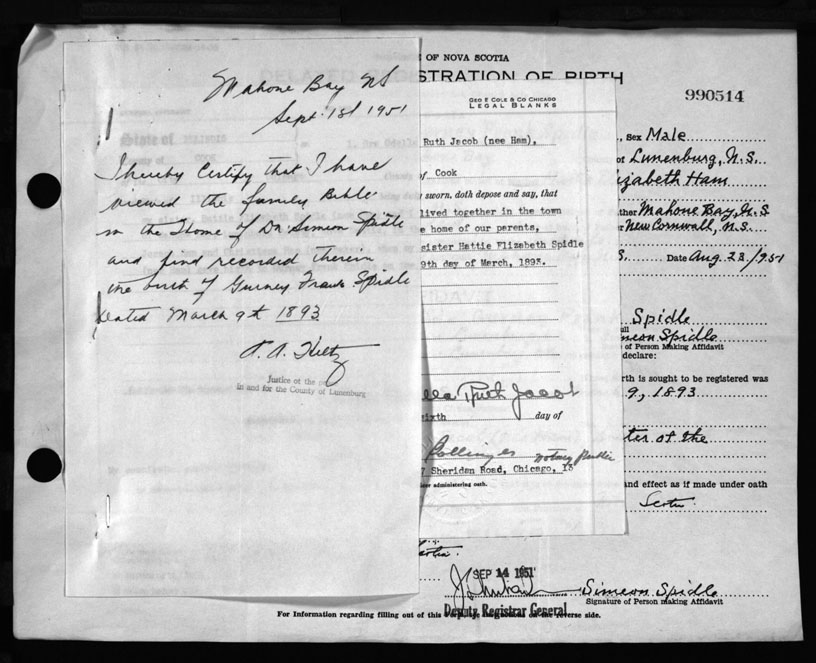 Mahone Bay NS
Sept. 1st 1951
I hereby Certify that I have
viewed the family Bible
in the Home of Dr. Simeon Spidle
and find recorded therein
the birth of Gurney Frank Spidle
dated March 9th 1893
Justice of the
in and for the County of Lunenburg
OF NOVA SCOTIA
STRATION OF BIRTH
990514
GEO E COLE & CO CHICAGO
LEGAL BLANKS
Ruth Jacob (nee Ham),
Cook
sworn, doth depose and say, that
lived together in the town
home of our parents,
sister Hattie Elizabeth Spidle
9th day of March, 1893.
Ruth Jacob
sixth day of
Notary Public
7 Sheridan Road, Chicago, 13
administering oath.
Sex Male
of Lunenburg, N.S.
izabeth Ham
Mahone Bay, N.S
New Cornwall, N.S.
Date Aug. 28/1951
Spidle
Simeon Spidle
of Person Making Affidavit
declare:
rth is sought to be registered was
9, 1893
ter of the
and effect as if made under oath
SEP 14 1951
Simeon Spidle
Signature of Person making Affidavit
Deputy Registrar General
For Information regarding filling out of this reverse side.